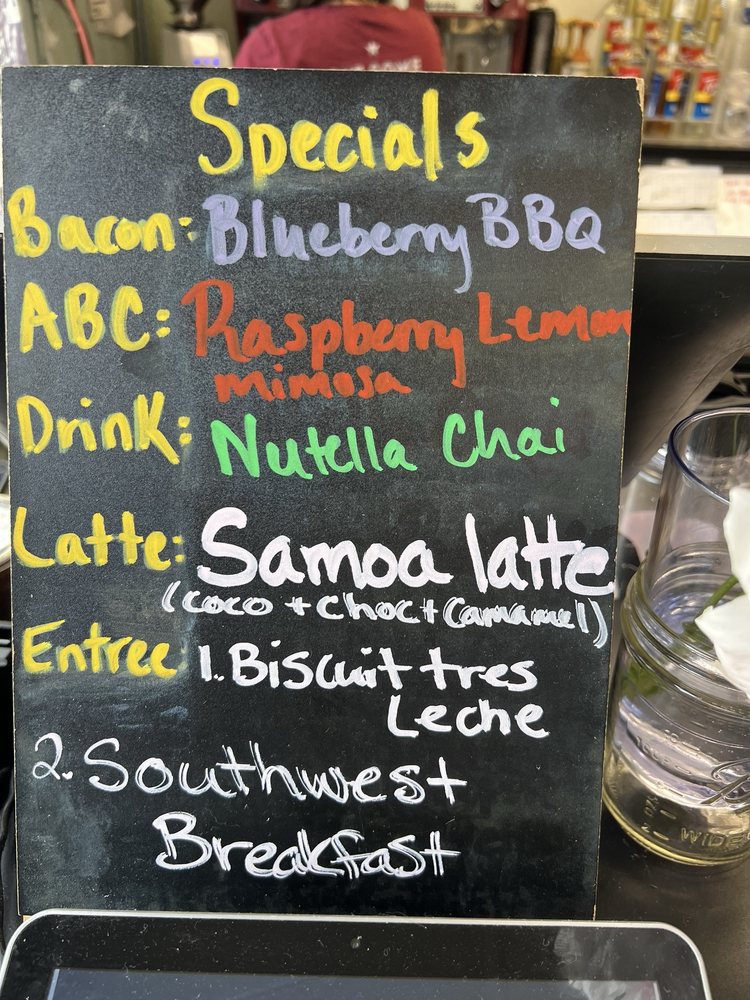 Specials
Bacon: Blueberry BBQ
ABC: Raspberry Lemon
mimosa
Drink: Nutella Chai
Latte: Samoa latte
(coco + choc + Caramel)
Entree 1. Biscuit tres
Leche
2. Southwest
Breakfast
WIDE